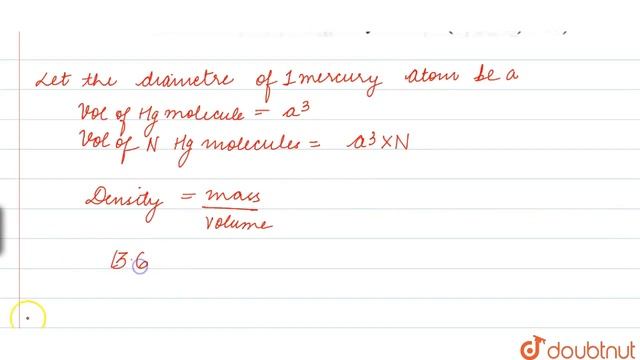 Let the diametre of 1 mercury atom be a
Vol of Hg molecule = a³
Vol of N Hg molecules = a³ × N
Density = mass
volume
13.6
doubtnut